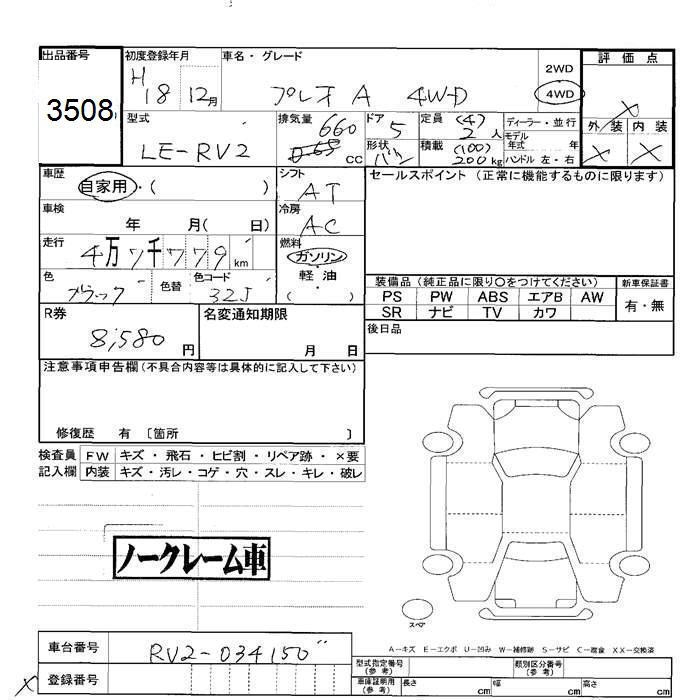 出品番号
3508
初度登録年月
H 18 12月
車名・グレード
プレオ A 4WD
2WD
4WD
評価点
X
外/装 内装
X X
型式
LE-RV2
排気量
660
0.65 cc
ドア
5
形状
バン
定員 (4)
2人
積載 (100)
200kg
ディーラー・並行
モデル
年式 年
ハンドル 左・右
車歴
自家用・( )
シフト
AT
車検
年 月( 日)
冷房
AC
走行
4万7千779km
燃料
ガソリン
軽・油
( )
色
ブラック
色替
色コード
32J
R券
8,580円
名変通知期限
月 日
セールスポイント (正常に機能するものに限ります)
装備品 (純正品に限り○をつけてください)
PS PW ABS エアB AW
SR ナビ TV カワ
新車保証書
有・無
後日品
注意事項申告欄(不具合内容等は具体的に記入して下さい)
修復歴 有 〔箇所 〕
検査員
記入欄
FW キズ・飛石・ヒビ割・リペア跡・×要
内装 キズ・汚レ・コゲ・穴・スレ・キレ・破レ
ノークレーム車
スペア
A-キズ E-エクボ U-凹み W-補修跡 S-サビ C-腐食 XX-交換済
車台番号
RV2-034150
X 登録番号
型式指定番号
(参考)
類別区分番号
(参考)
車庫証明用
(参考)
長さ cm 幅 cm 高さ cm